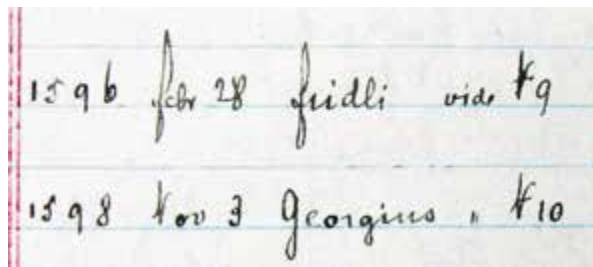 1596 febr 28 fridli vide N 9
1598 Nov 3 Georgius " N 10